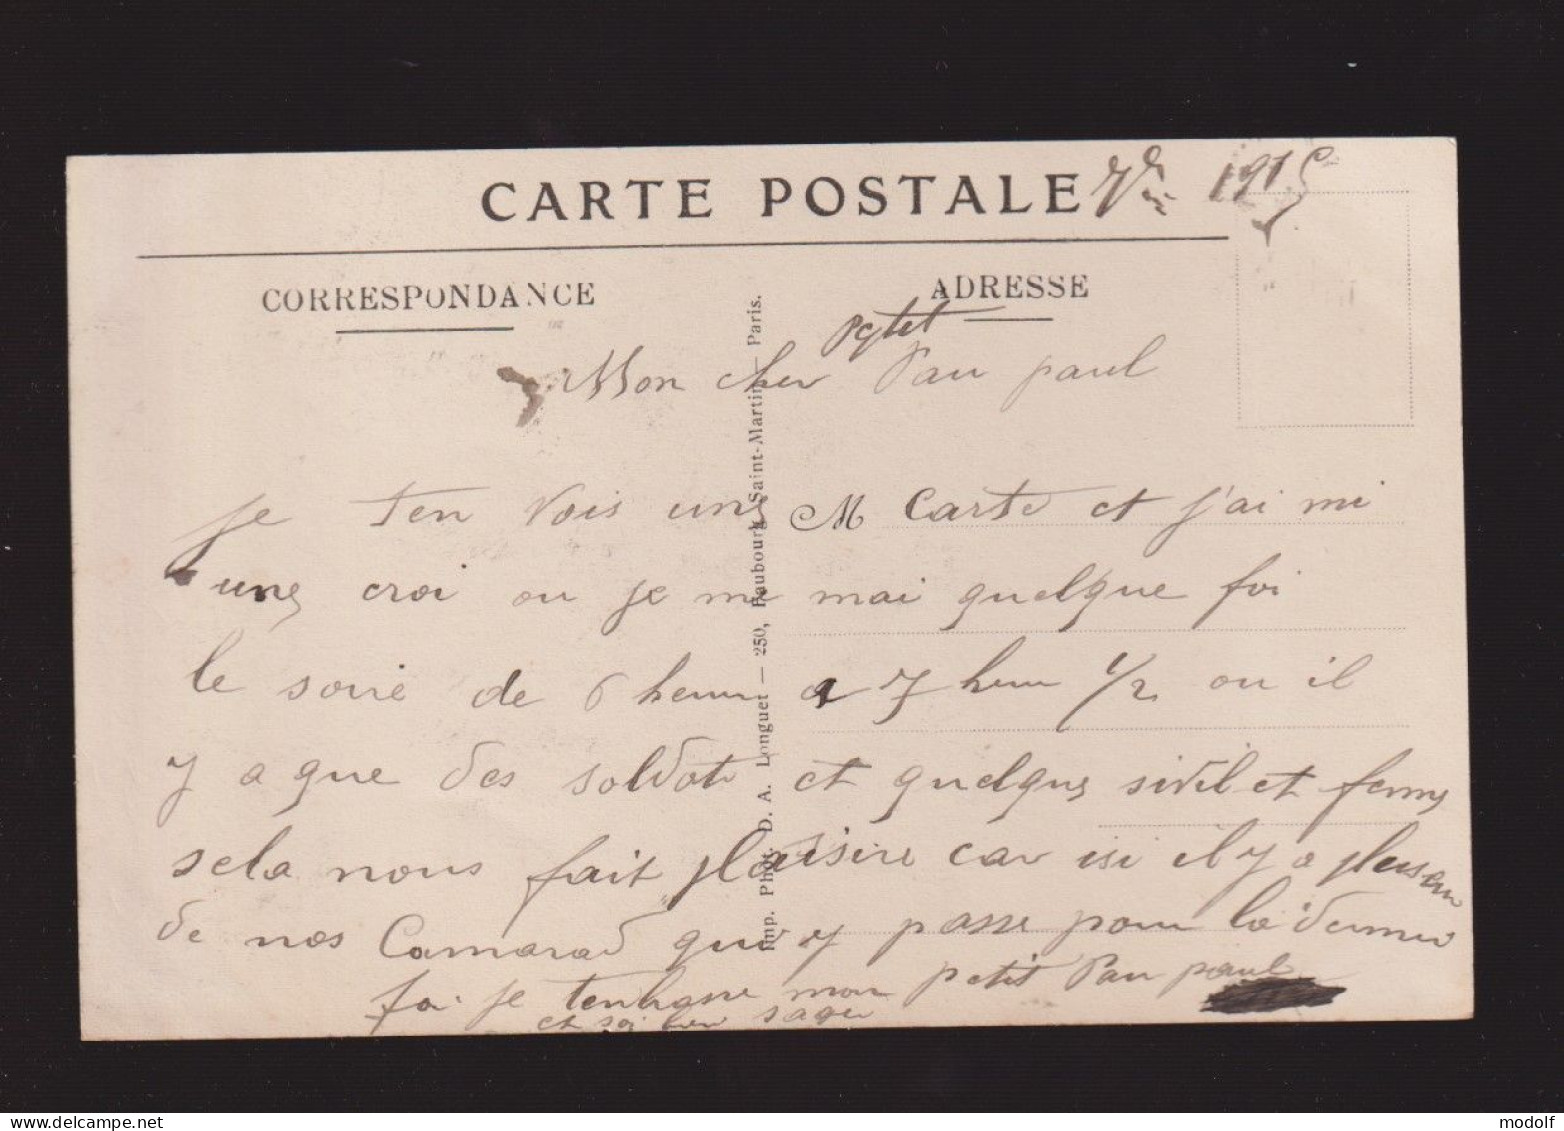 CARTE POSTALE 1915
CORRESPONDANCE
ADRESSE
petit
Mon cher Pau paul
Je ten vois une M Carte et j'ai mi
une croi ou je me mai quelque foi
le soire de 6 heur a 7 heur 1/2 ou il
y a que des soldat et quelque sivil et femme
sela nous fait plaisire car isi il y a plusieur
de nos Camarad qui y passe pour la dernier
foi je tenbrasse mon petit Pau paul
et soi bien sage
Imp. Phot. D. A. Longuet — 250, Faubourg Saint-Martin — Paris.
delcampe.net
modolf